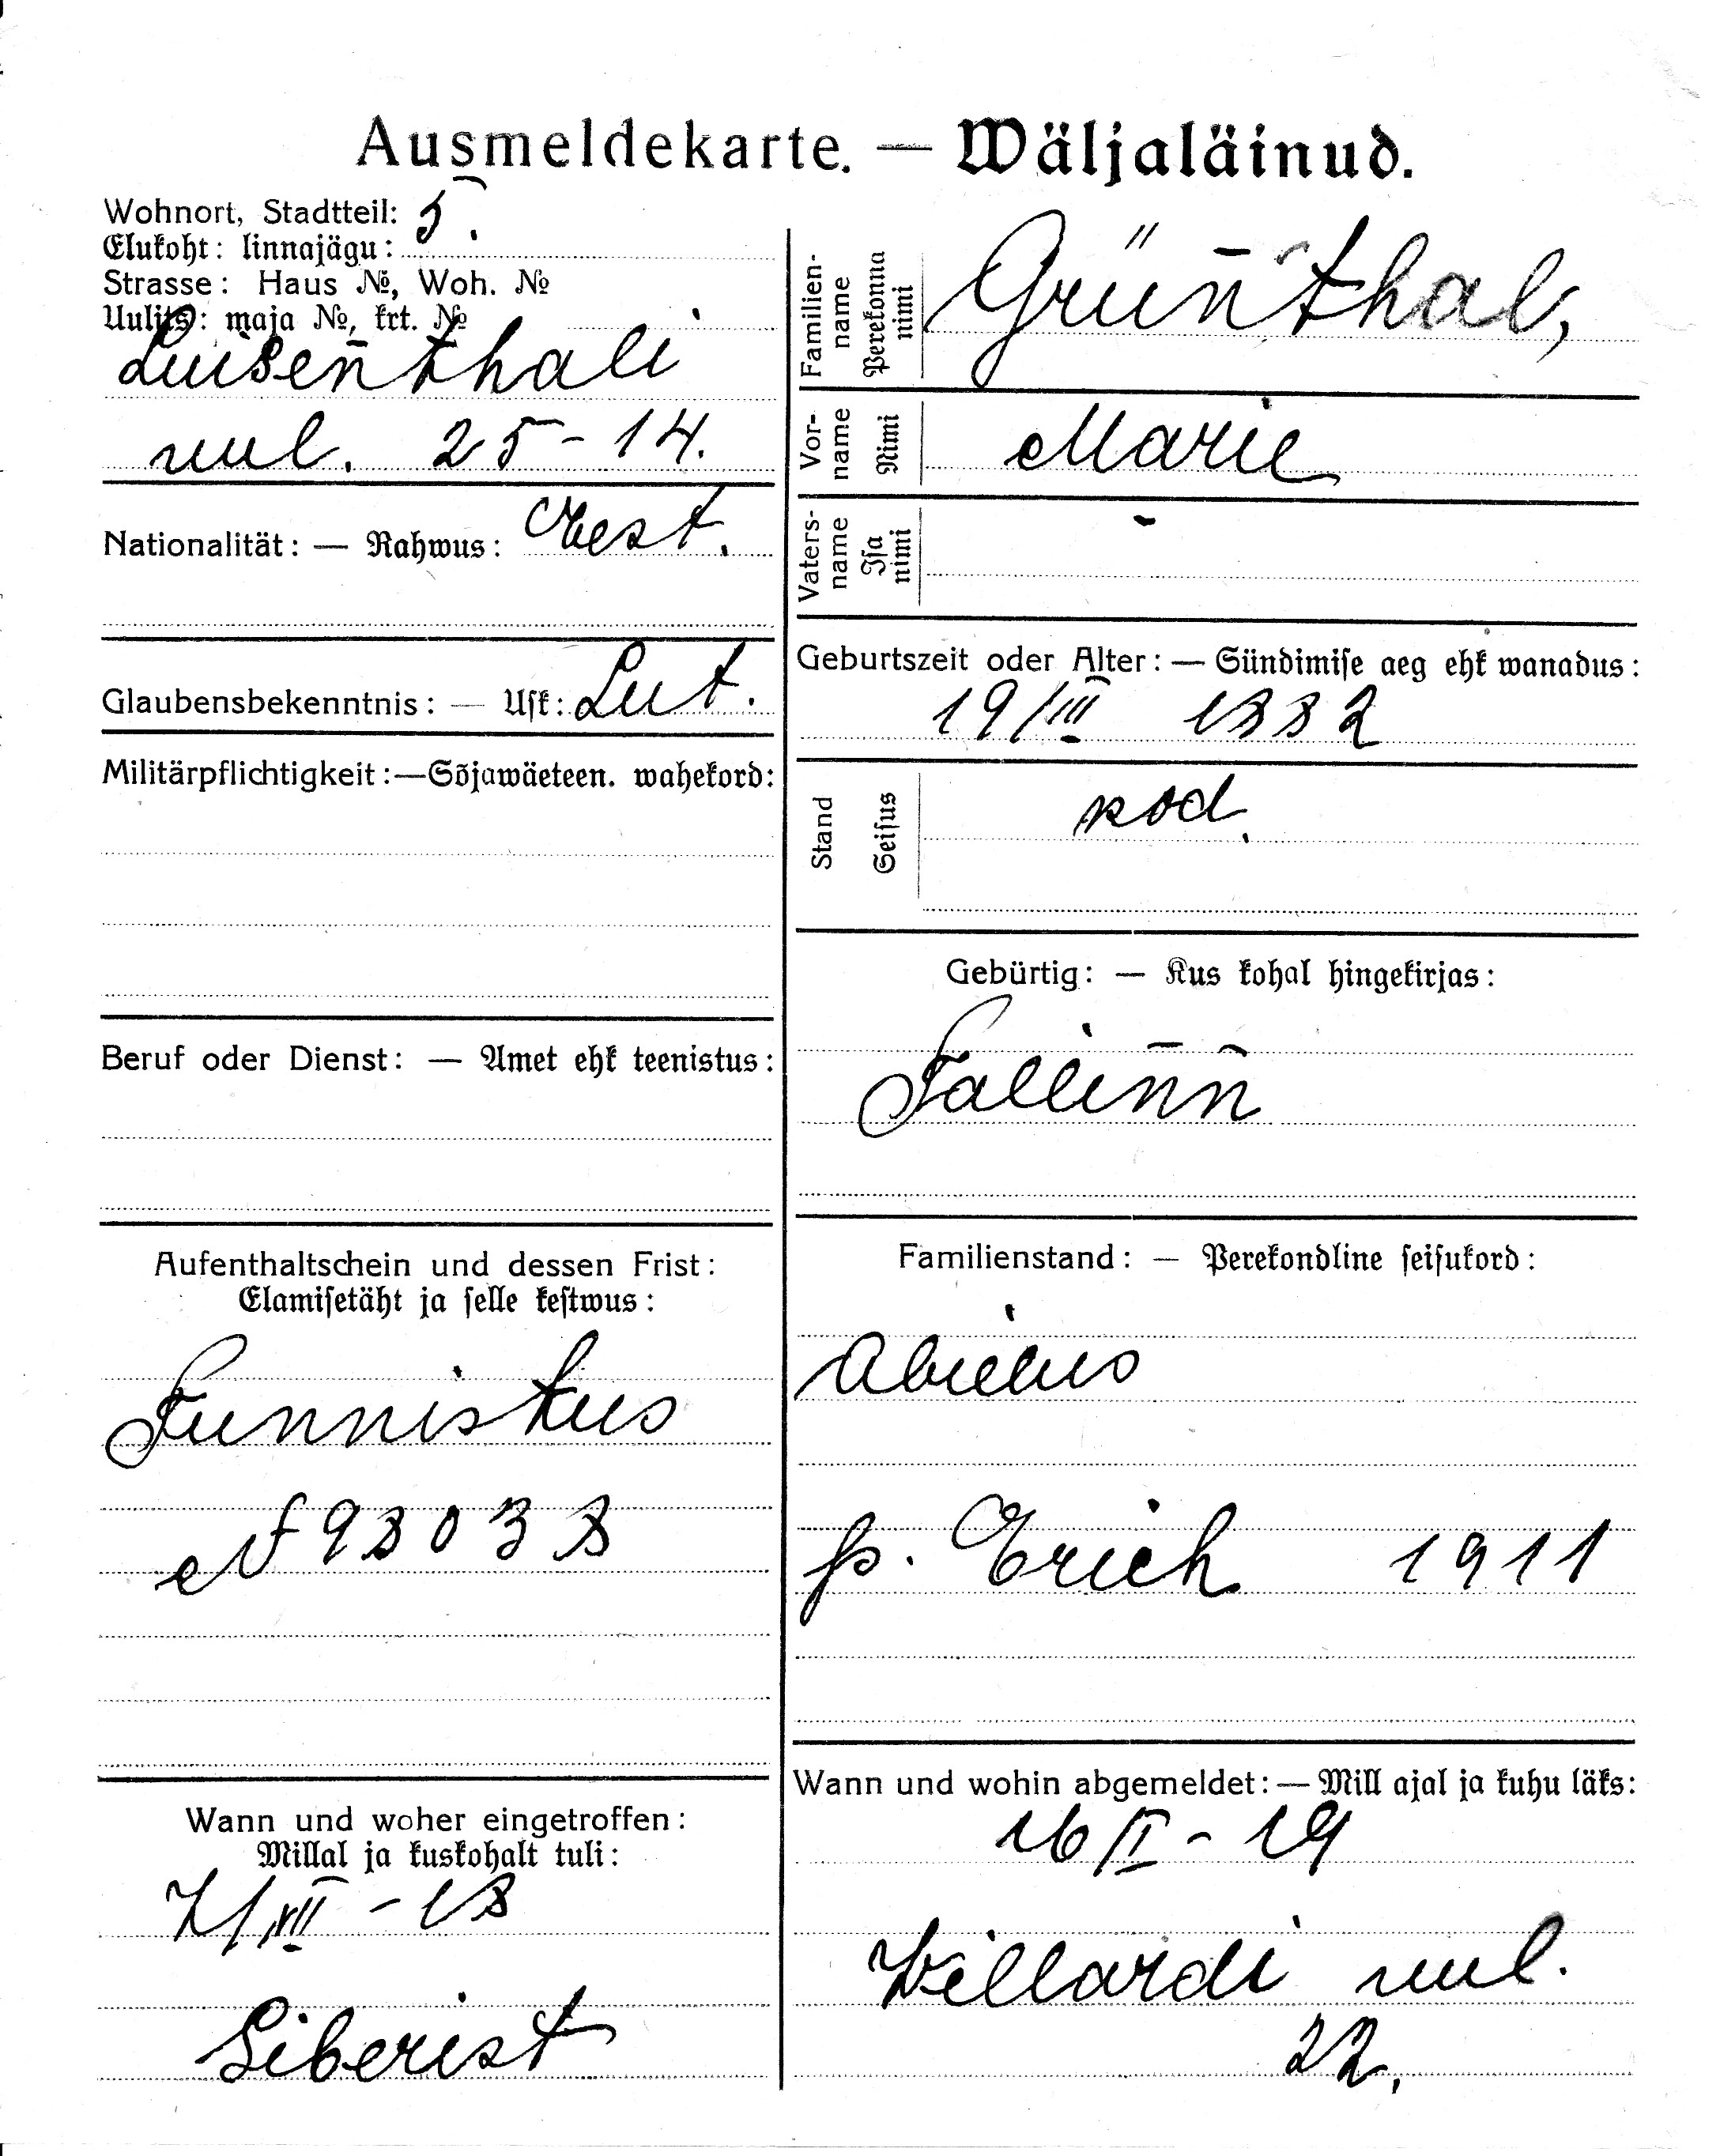 Ausmeldekarte. — Wäljaläinud.
Wohnort, Stadtteil: 5.
Elukoht: linnajägu:
Strasse: Haus №, Woh. №
Uulits: maja №, krt. №
Luisenthali
uul. 25-14.
Nationalität: — Rahwus: Eest.
Glaubensbekenntnis: — Usk: Lut.
Militärpflichtigkeit:—Sõjawäeteen. wahekord:
Beruf oder Dienst: — Amet ehk teenistus:
Aufenthaltschein und dessen Frist:
Elamisetäht ja selle kestwus:
Tunnistus
№ 98038
Wann und woher eingetroffen:
Millal ja kuskohalt tuli:
7/XII - 18
Siberist
Familien-
name
Perekonna
nimi
Grünthal,
Vor-
name
Nimi
Marie
Vaters-
name
Isa
nimi
-
Geburtszeit oder Alter: — Sündimise aeg ehk wanadus:
19/III 1882
Stand
Seisus
kod.
Gebürtig: — Kus kohal hingekirjas:
Tallinn
Familienstand: — Perekondline seisukord:
abielus
p. Erich 1911
Wann und wohin abgemeldet: — Mill ajal ja kuhu läks:
16/II - 19
Willardi uul.
22.